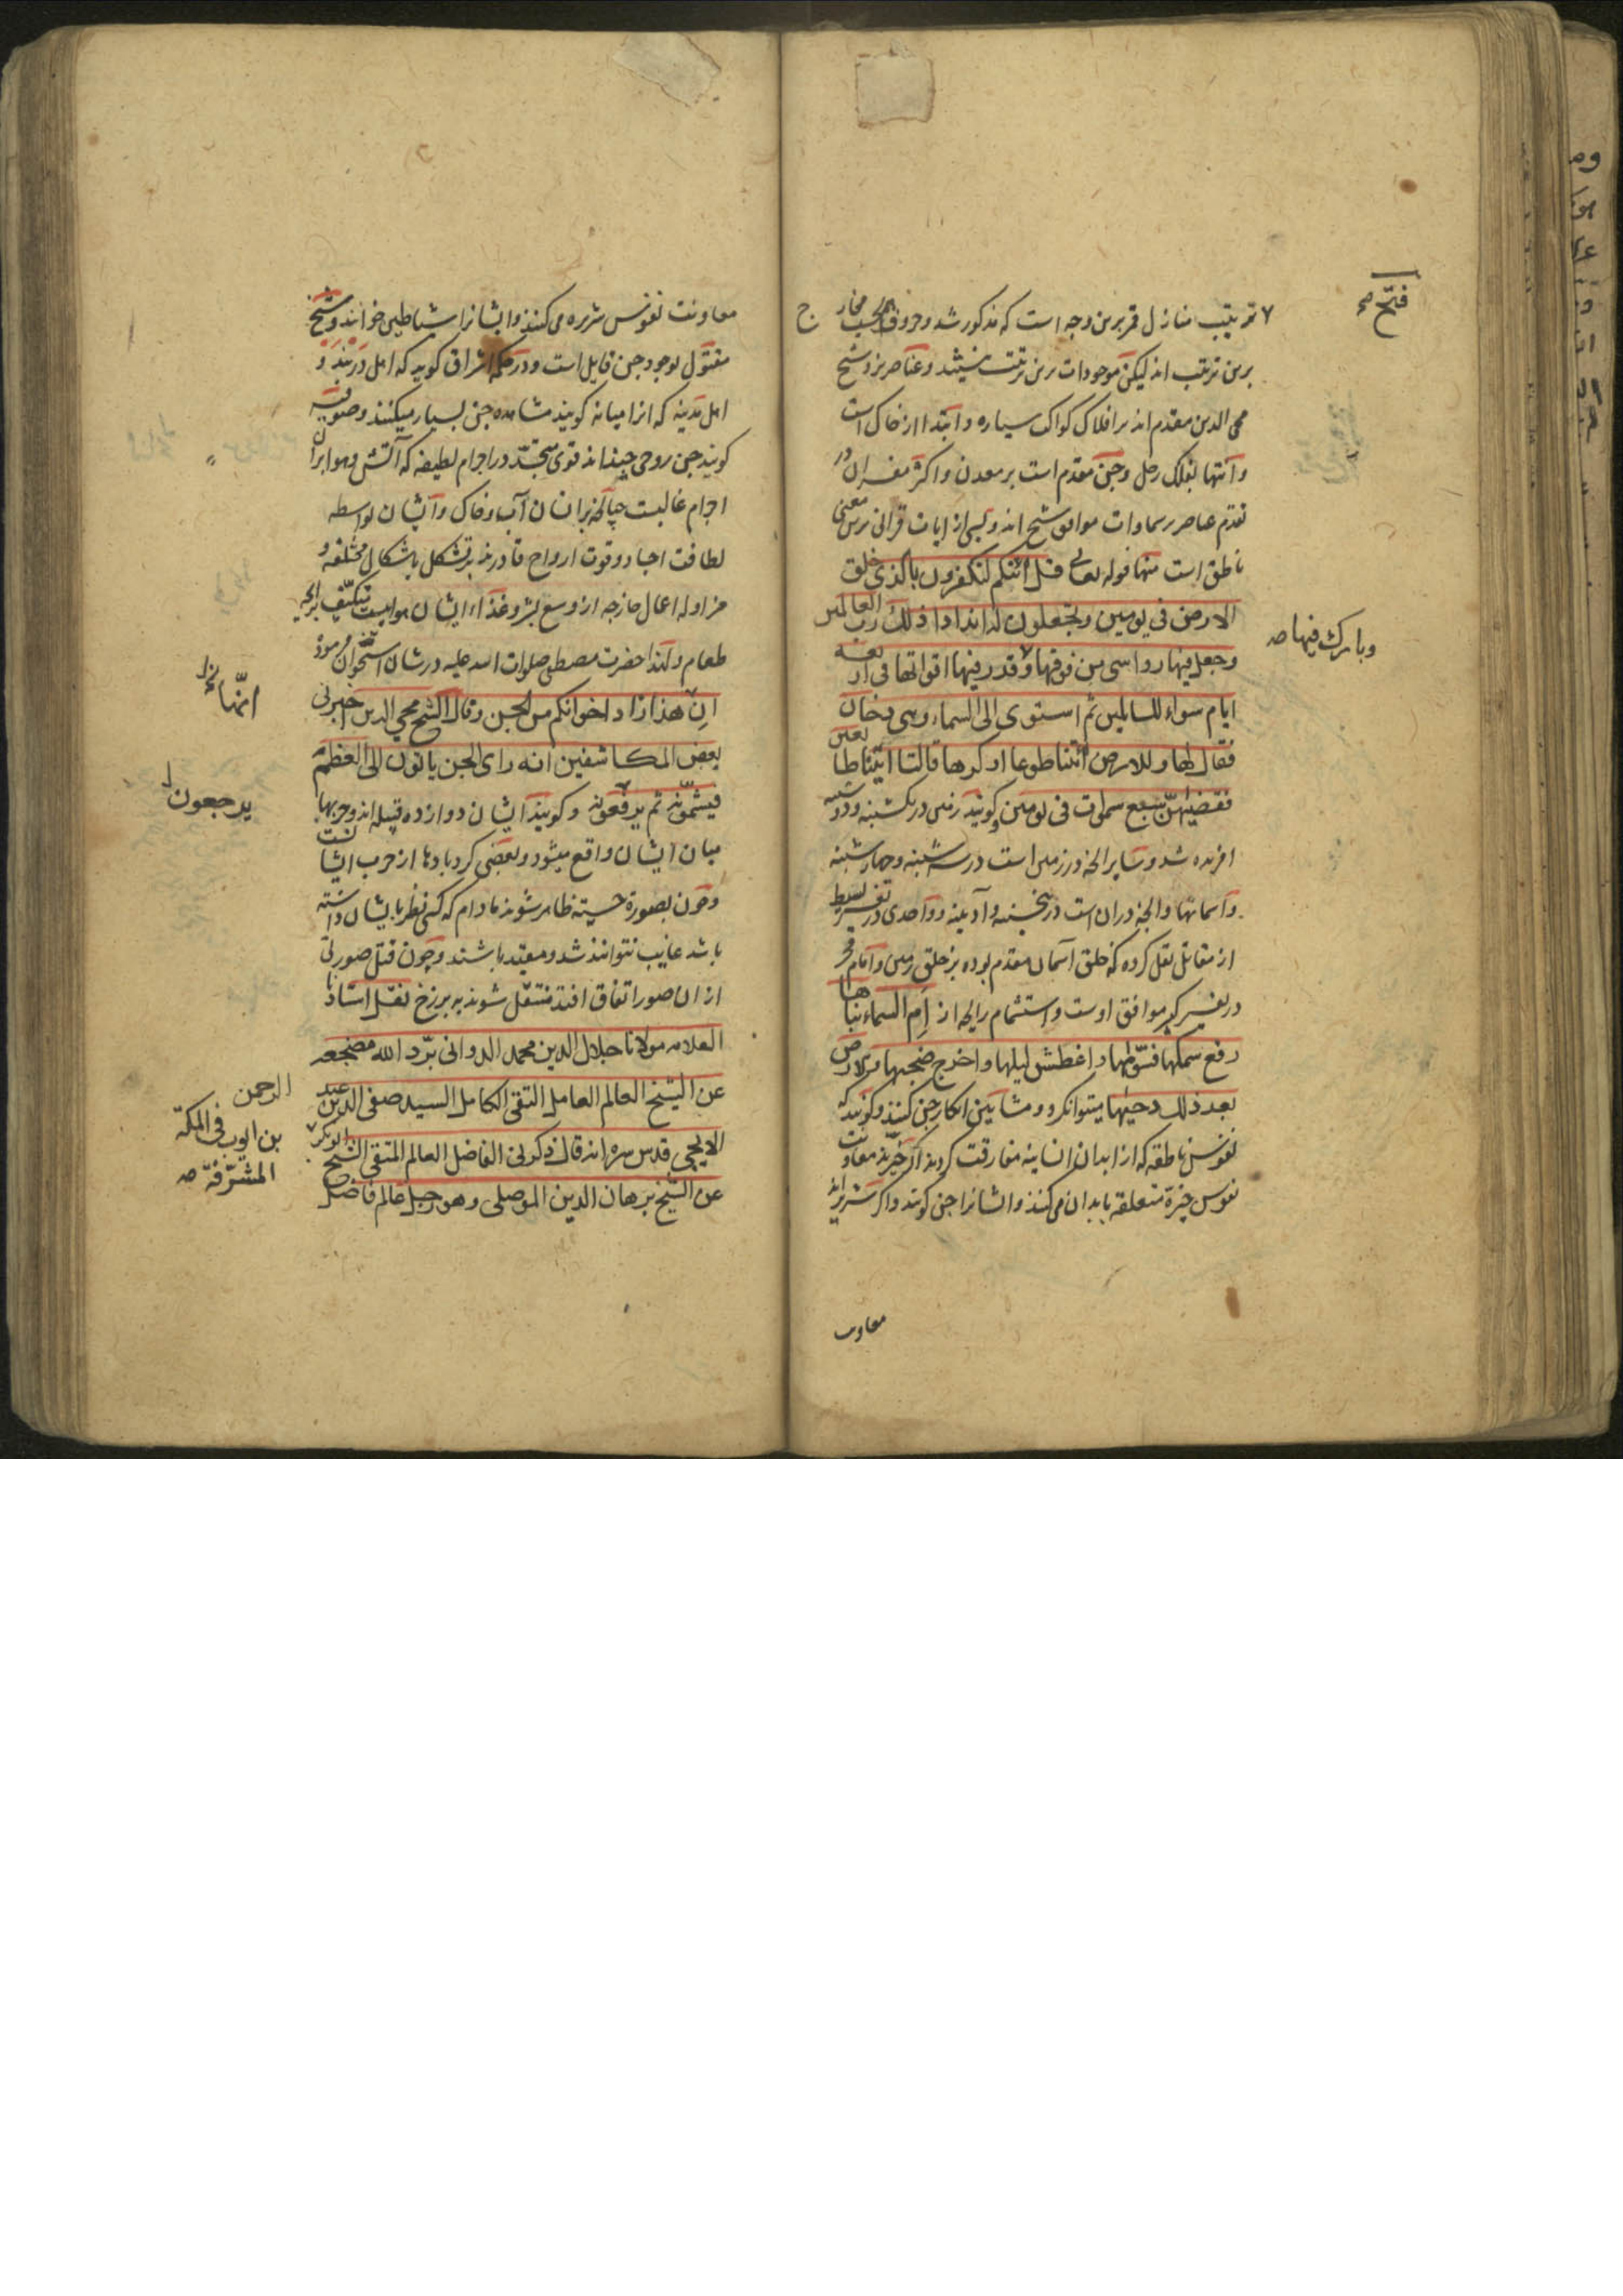 ترتیب منازل قمر برین وجه است که مذکور شد و حروف بحسب مخارج
برین ترتیب اند لیکن موجودات برین ترتیب نیستند و عناصر نزد شیخ
محی الدین مقدم اند بر افلاک کواکب سیاره و ابتدا از خاک است
و انتها بفلک زحل و جن مقدم است بر معدن و اکثر مفسران در
تقدم عناصر بر سماوات موافق شیخ اند و بسی از ایات قرانی برین معنی
ناطق است منها قوله تعالی قل أئنکم لتکفرون بالذی خلق
الارض فی یومین و تجعلون له اندادا ذلک رب العالمین
وجعل فیها رواسی من فوقها وقدر فیها اقواتها فی اربعة
ایام سواء للسایلین ثم استوی الی السماء وهی دخان
فقال لها وللارض ائتیا طوعا او کرها قالتا اتینا طایعین
فقضیهن سبع سموات فی یومین و کویند زمین در یکشنبه و دوشنبه
افریده شد و سایر انچه در زمین است در سه شنبه و چهارشنبه
و آسمانها و انچه دران است در پنجشنبه و آدینه و واحدی در تفسیر بسیط
از مقاتل نقل کرده که خلق آسمان مقدم بوده بر خلق زمین و امام فخر
در تفسیر کبیر موافق اوست و استشمام رایحه از ام السماء بناها
رفع سمکها فسویها و اغطش لیلها و اخرج ضحیها والارض
بعد ذلک دحیها میتوان کرد و مشایین انکار جن کنند و کویند که
نفوس ناطقه که از ابدان انسانیه مفارقت کردند اکر خیرند معاونت
نفوس خیره متعلقه بابدان می کنند و ایشانرا جن کویند و اکر شریراند
معاونت
فتح صح
وبارک فیها صح
معاونت نفوس شریره می کنند و ایشانرا شیاطین خوانند و شیخ
مقتول بوجود جن قایل است و در حکمة اشراق کوید که اهل دربند و
اهل مدینه که انرا میانه کویند مشاهده جن بسیار میکنند و صوفیه
کویند جن روحی چند اند قوی متجسد در اجرام لطیفه که آتش و هوا بران
اجرام غالبست چنانچه بر انسان آب و خاک و ایشان بواسطه
لطافت اجساد و قوت ارواح قادرند بر تشکل باشکال مختلفه و
مزاوله اعمال خارجه از وسع بشر و غذاء ایشان هواییست متکیف برایحه
طعام و لهذا حضرت مصطفی صلوات الله علیه در شان استخوان فرموده
ان هذا زاد اخوانکم من الجن و قال الشیخ محیی الدین اخبرنی
بعض المکاشفین انه رای الجن یاتون الی العظم
فیشمونه ثم یرفعونه و کویند ایشان دوازده قبیله اند و حربها
میان ایشان واقع میشود و بعضی کردبادها از حرب ایشانست
و چون بصورة حسیه ظاهر شوند مادام که کسی نظر بایشان داشته
باشد غایب نتوانند شد و مقید باشند و چون قتل صورتی
از ان صور اتفاق افتد منتقل شوند به برزخ نقل استادنا
العلامه مولانا جلال الدین محمد الدوانی برد الله مضجعه
عن الشیخ العالم العامل التقی الکامل السید صفی الدین عبد
الایجی قدس سره انه قال ذکر لی الفاضل العالم المتقی الشیخ ابوبکر
عن الشیخ برهان الدین الموصلی وهو رجل عالم فاضل
یرجعون
الرحمن
بن ایوب فی المکة
المشرفة صح